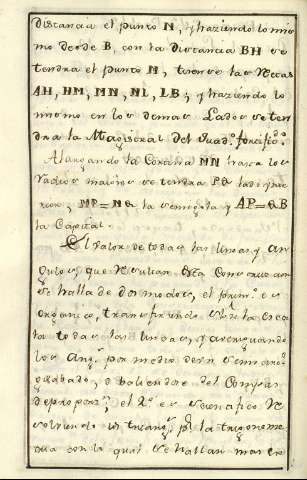 distancia el punto N, y haziendo lo mis
mo desde B, con la distancia BH se
tendra el punto N, tirense las Rectas
AH, HM, MN, NL, LB; y haziendo lo
mismo en los demas Lados se ten
dra la Magistral del Quad.º fortific.dº
Alargando la Cortina MN hasta los
radios maiores se tendra PQ
MP=NQ la semigola y AP=QB
la Capital.
El valor de todas las lineas y an
gulos, que resultan
se halla de dos modos, el prim.º es
organico, transfiriendo
la todas las lineas, y averiguando
los Ang.s por medio de un semicirc.º
graduado, o baliendose del Compas
de proporz.n; el 2.º es scientifico Re
solviendo los triang.s p.r la trigonome
tria con la qual se hallan mas